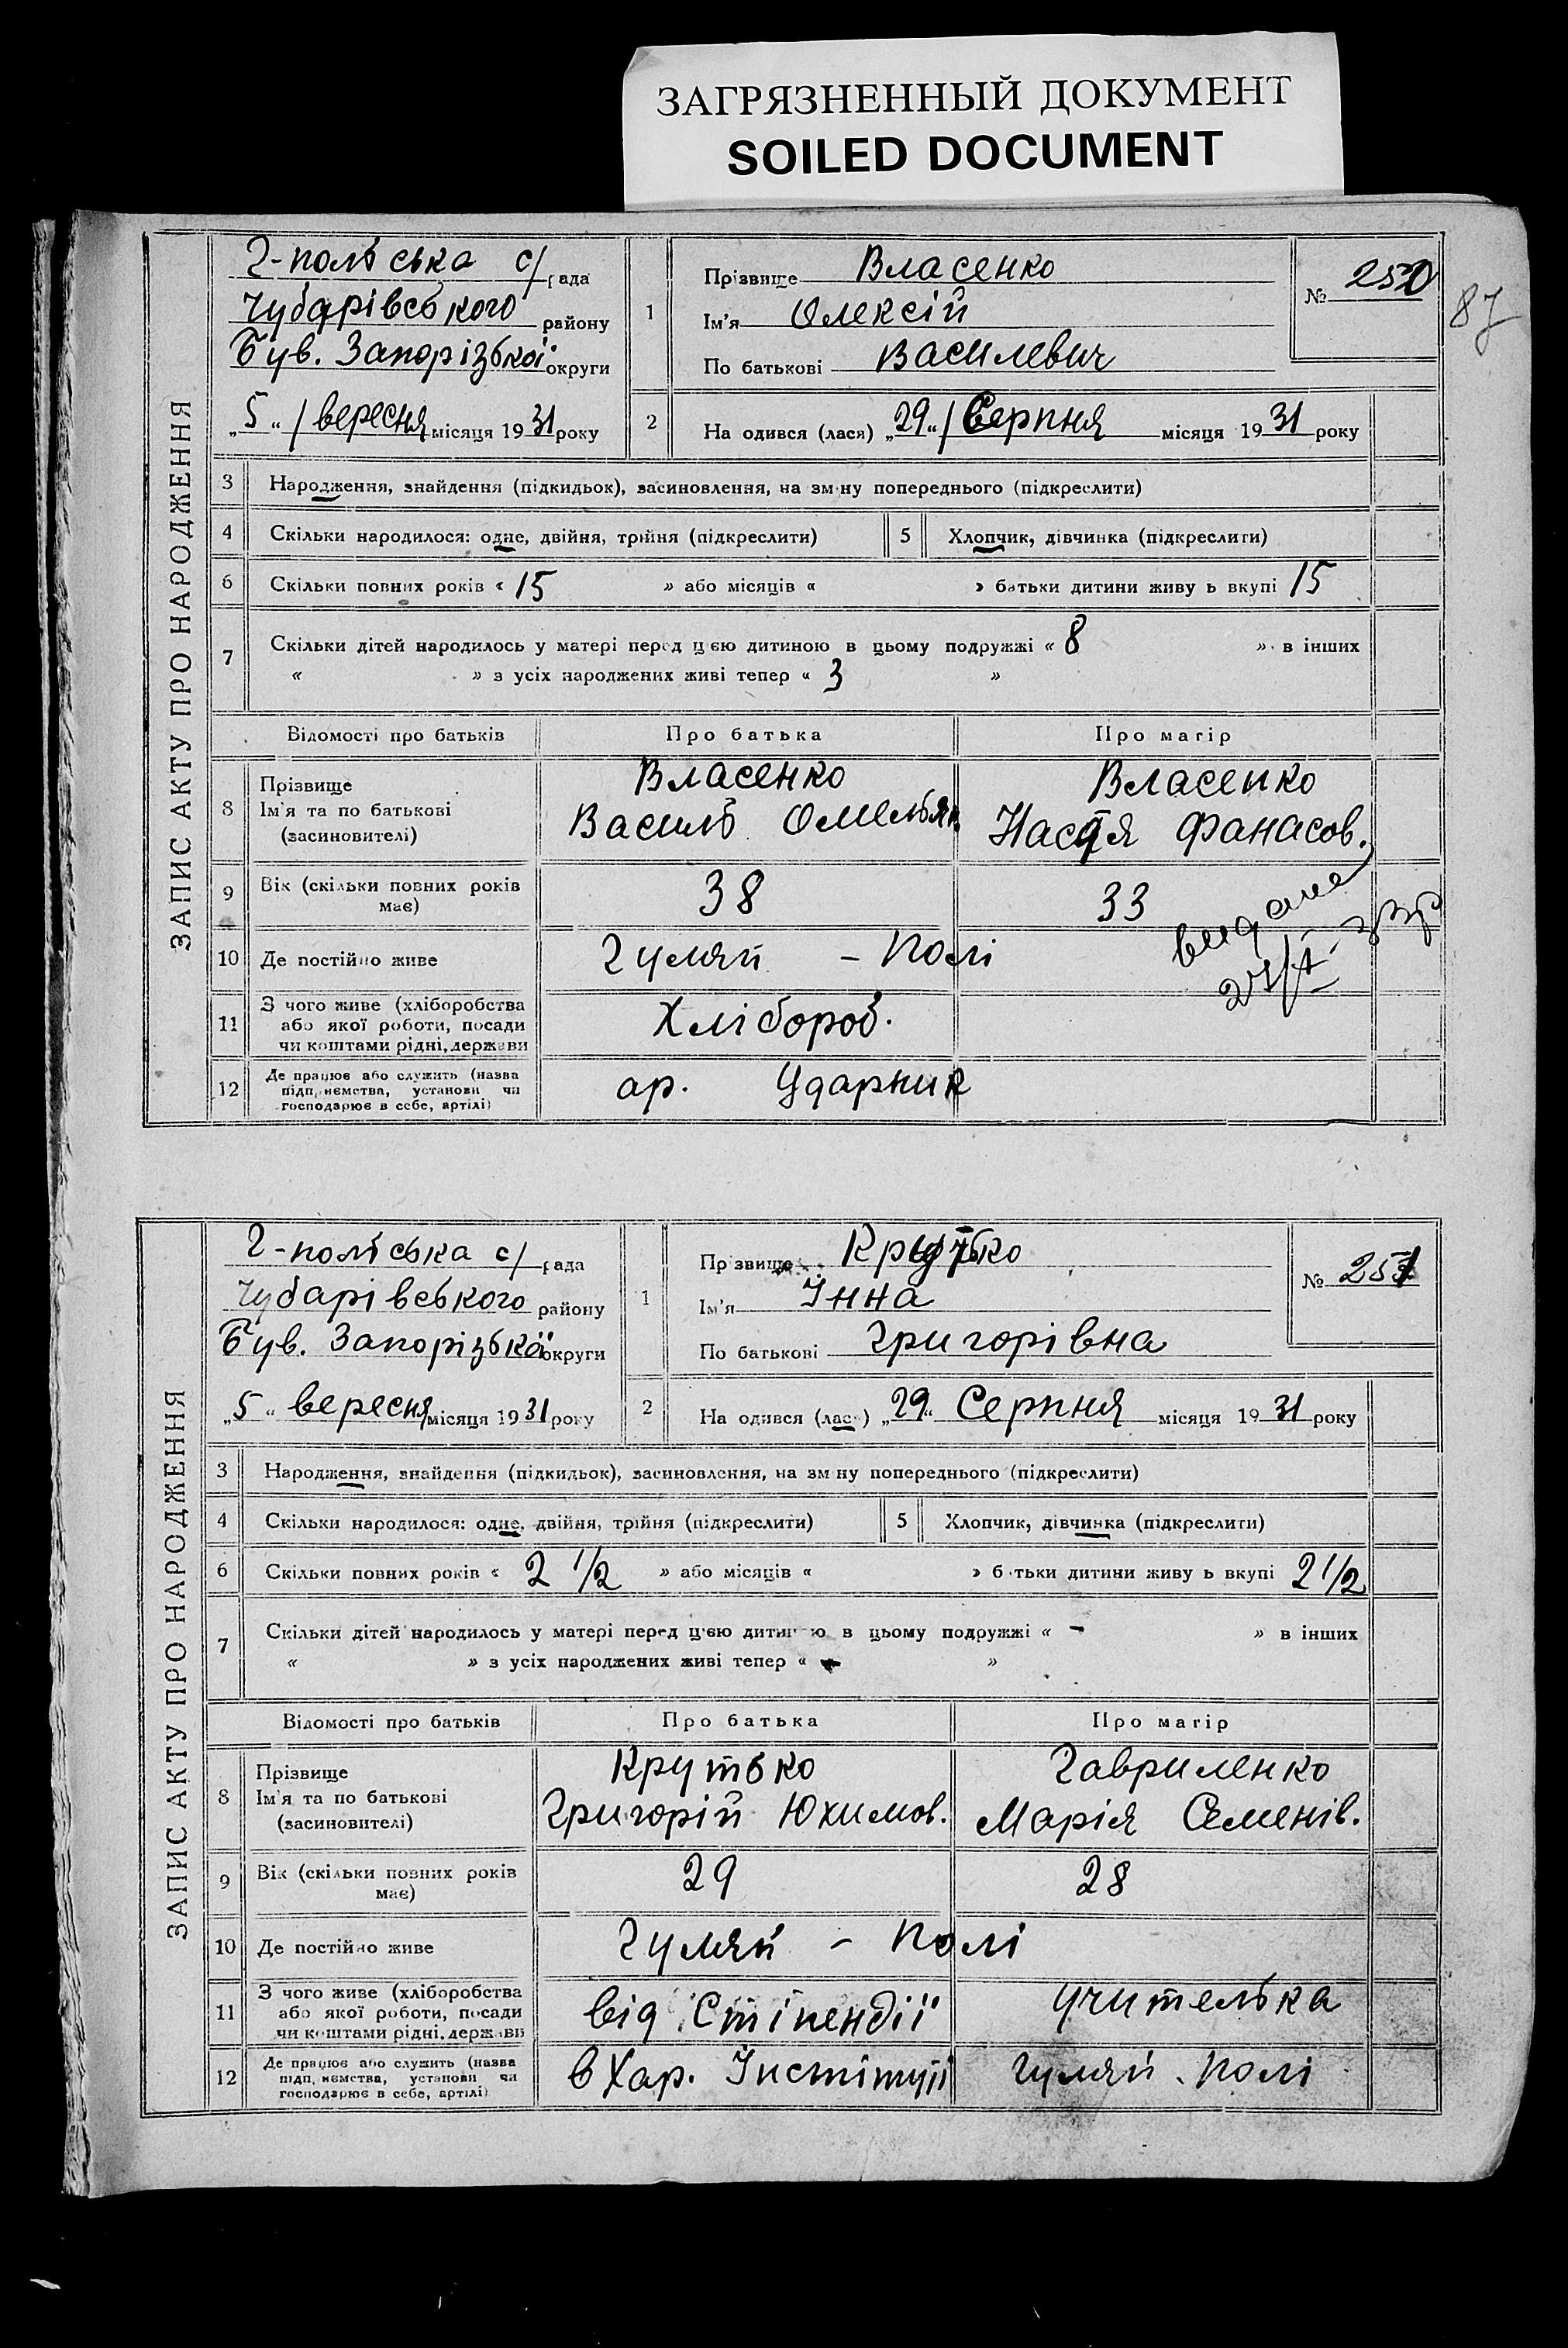 ЗАГРЯЗНЕННЫЙ ДОКУМЕНТ
SOILED DOCUMENT
87
ЗАПИС АКТУ ПРО НАРОДЖЕННЯ
Г-польська с/рада
Чубарівського району
Був. Запорізької округи
„5“/вересня місяця 1931 року
1
Прізвище Власенко
Ім'я Олексій
По батькові Василевич
№ 250
2 На одився (лася) „29“/Серпня місяця 1931 року
3 Народження, знайдення (підкидьок), засиновлення, на зм ну попереднього (підкреслити)
4 Скільки народилося: одне, двійня, трійня (підкреслити) 5 Хлопчик, дівчинка (підкреслити)
6 Скільки повних років « 15 » або місяців « » батьки дитини живу ь вкупі 15
7 Скільки дітей народилось у матері перед цією дитиною в цьому подружжі « 8 » в інших
« » з усіх народжених живі тепер « 3 »
Відомості про батьків Про батька Про матір
8 Прізвище Власенко Власенко
Ім'я та по батькові Василь Омельян. Настя Фанасов.
(засиновителі)
9 Вік (скільки повних років має) 38 33
видане
10 Де постійно живе Гуляй - Полі
11 З чого живе (хліборобства або якої роботи, посади чи коштами рідні, держави Хлібороб.
12 Де працює або служить (назва підприємства, установи чи господарює в себе, артілі) ар. Ударник
ЗАПИС АКТУ ПРО НАРОДЖЕННЯ
Г-польська с/рада
Чубарівського району
Був. Запорізької округи
„5“ вересня місяця 1931 року
1
Пр звище Крутько
Ім'я Інна
По батькові Григорівна
№ 251
2 На одився (лася) „29“ Серпня місяця 1931 року
3 Народження, знайдення (підкидьок), засиновлення, на зм ну попереднього (підкреслити)
4 Скільки народилося: одне, двійня, трійня (підкреслити) 5 Хлопчик, дівчинка (підкреслити)
6 Скільки повних років « 2 1/2 » або місяців « » б тьки дитини живу ь вкупі 2 1/2
7 Скільки дітей народилось у матері перед цією дитиною в цьому подружжі « - » в інших
« » з усіх народжених живі тепер « - »
Відомості про батьків Про батька Про матір
8 Прізвище Крутько Гавриленко
Ім'я та по батькові Григорій Юхимов. Марія Семенів.
(засиновителі)
9 Вік (скільки повних років має) 29 28
10 Де постійно живе Гуляй - Полі
11 З чого живе (хліборобства або якої роботи, посади чи коштами рідні, держави від Стіпендії Учителька
12 Де працює або служить (назва підприємства, установи чи господарює в себе, артілі) в Хар. Інстітуті Гуляй. Полі